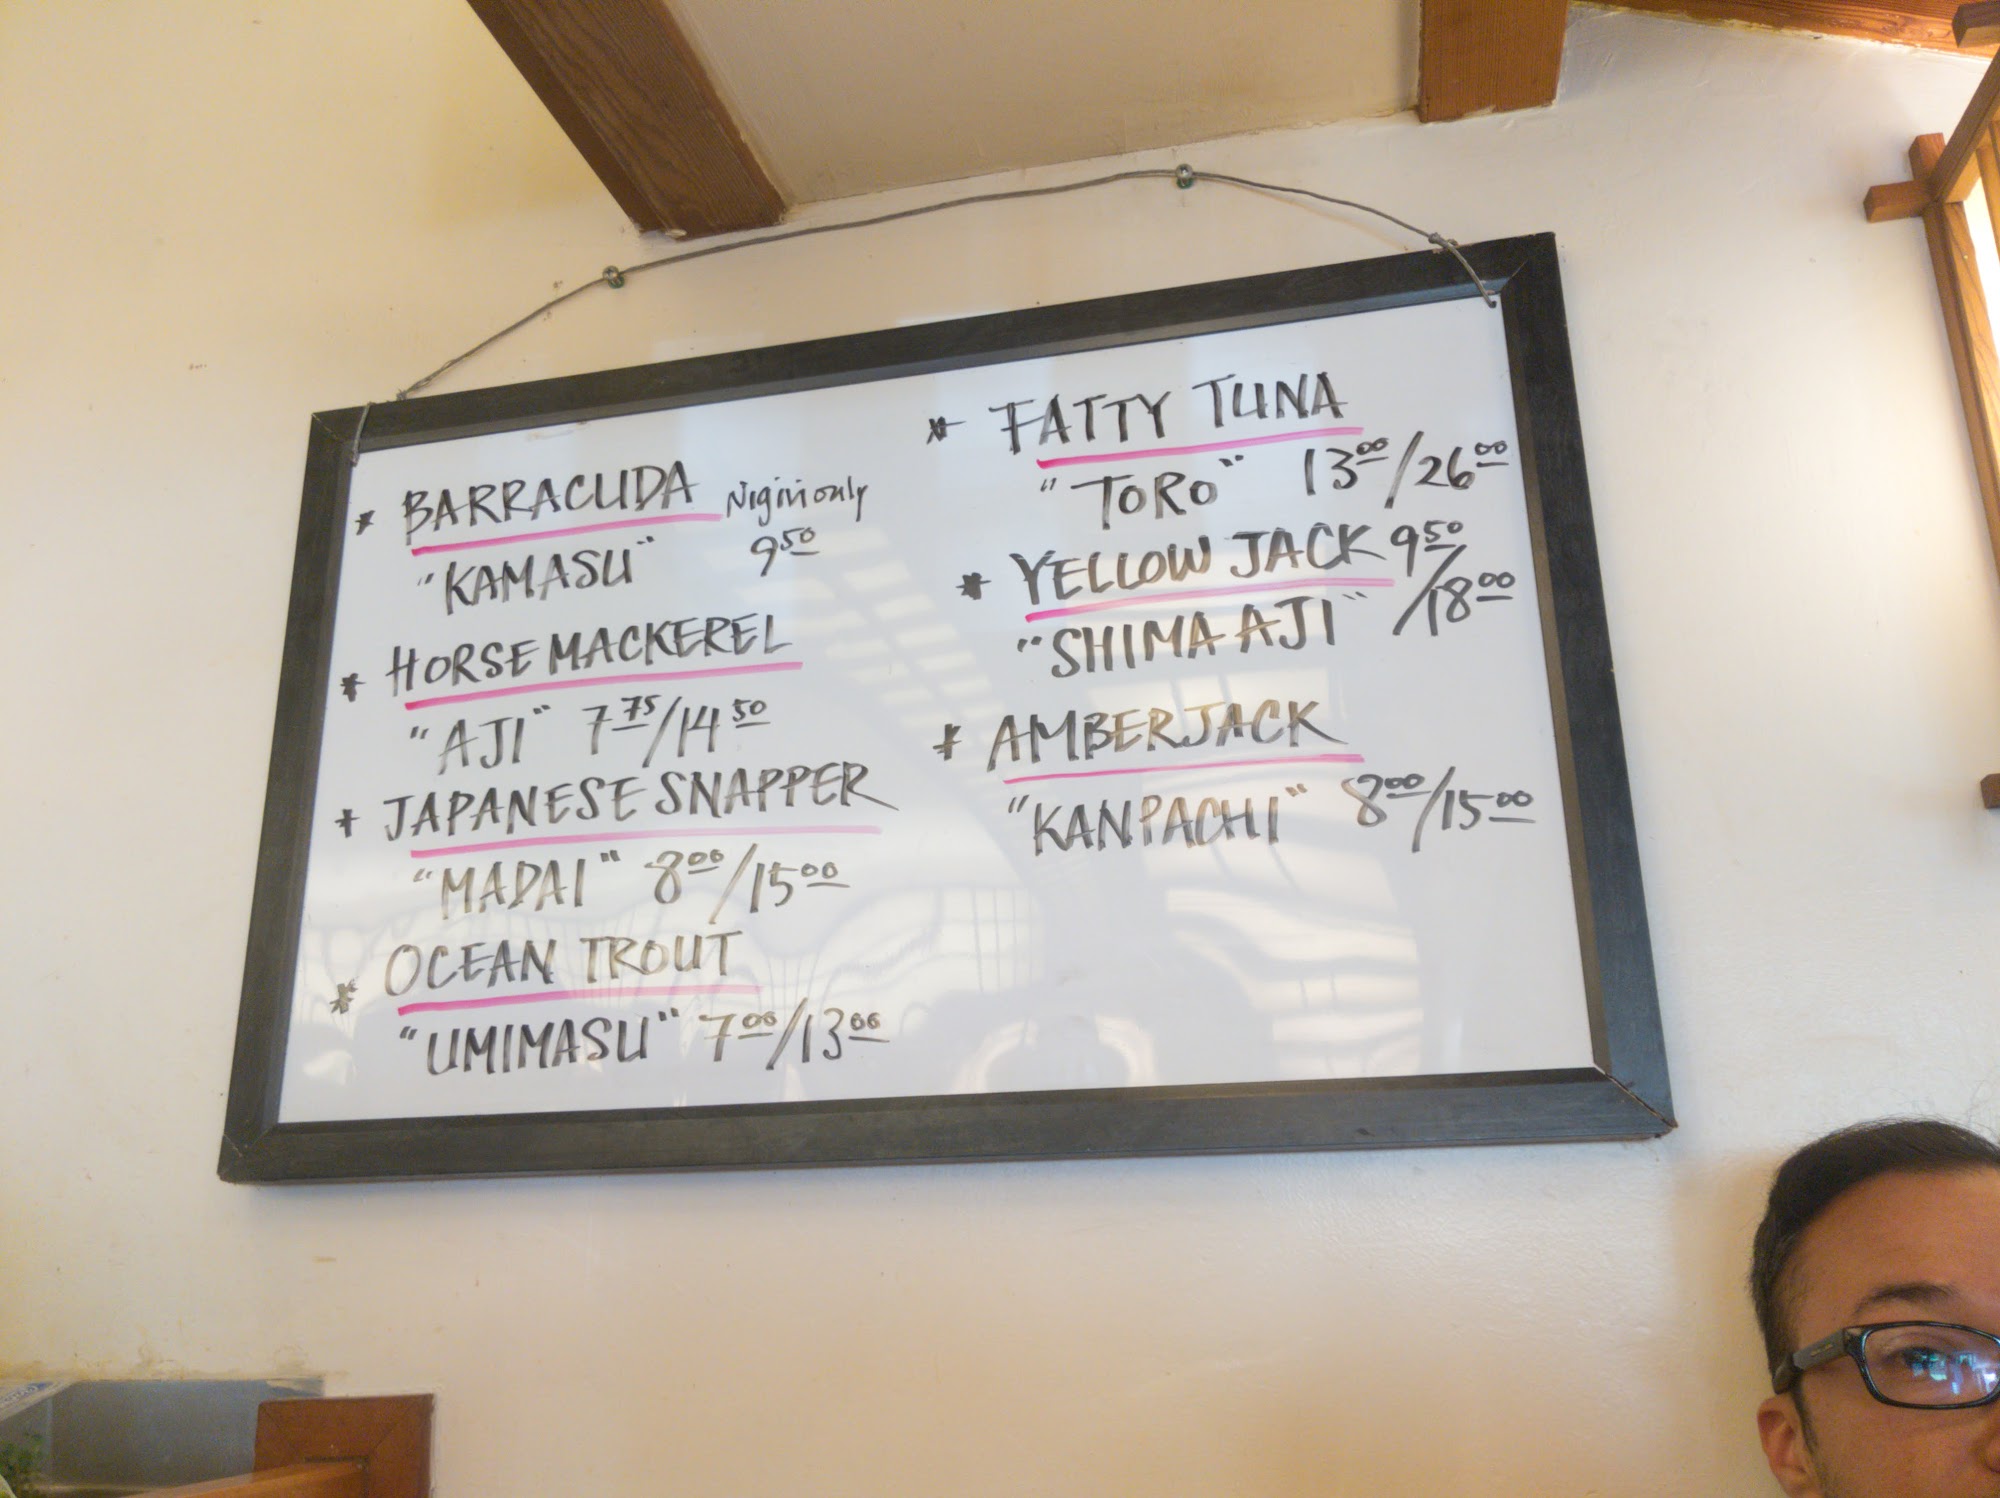 * BARRACUDA Nigiri only
"KAMASU" 9.50
* HORSE MACKEREL
"AJI" 7.75/14.50
* JAPANESE SNAPPER
"MADAI" 8.00/15.00
* OCEAN TROUT
"UMIMASU" 7.00/13.00
* FATTY TUNA
"TORO" 13.00/26.00
* YELLOW JACK 9.50
"SHIMA AJI" /18.00
* AMBERJACK
"KANPACHI" 8.00/15.00